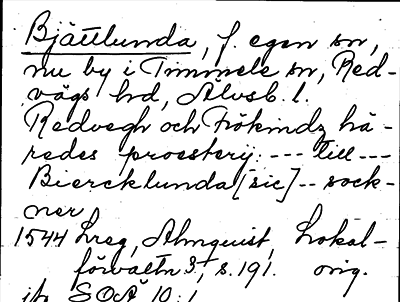 Bjättlunda, f. egen sn,
nu by i Timmele sn, Red-
vägs hd, Älvsb. l.
Redvegh och Frökindz hä-
redes proesterij: --- till ---
Biercklunda [sic] -- sock-
ner
1544 Lreg, Almquist, Lokal-
förvaltn 3, s. 191. orig.
SOÄ 10:1